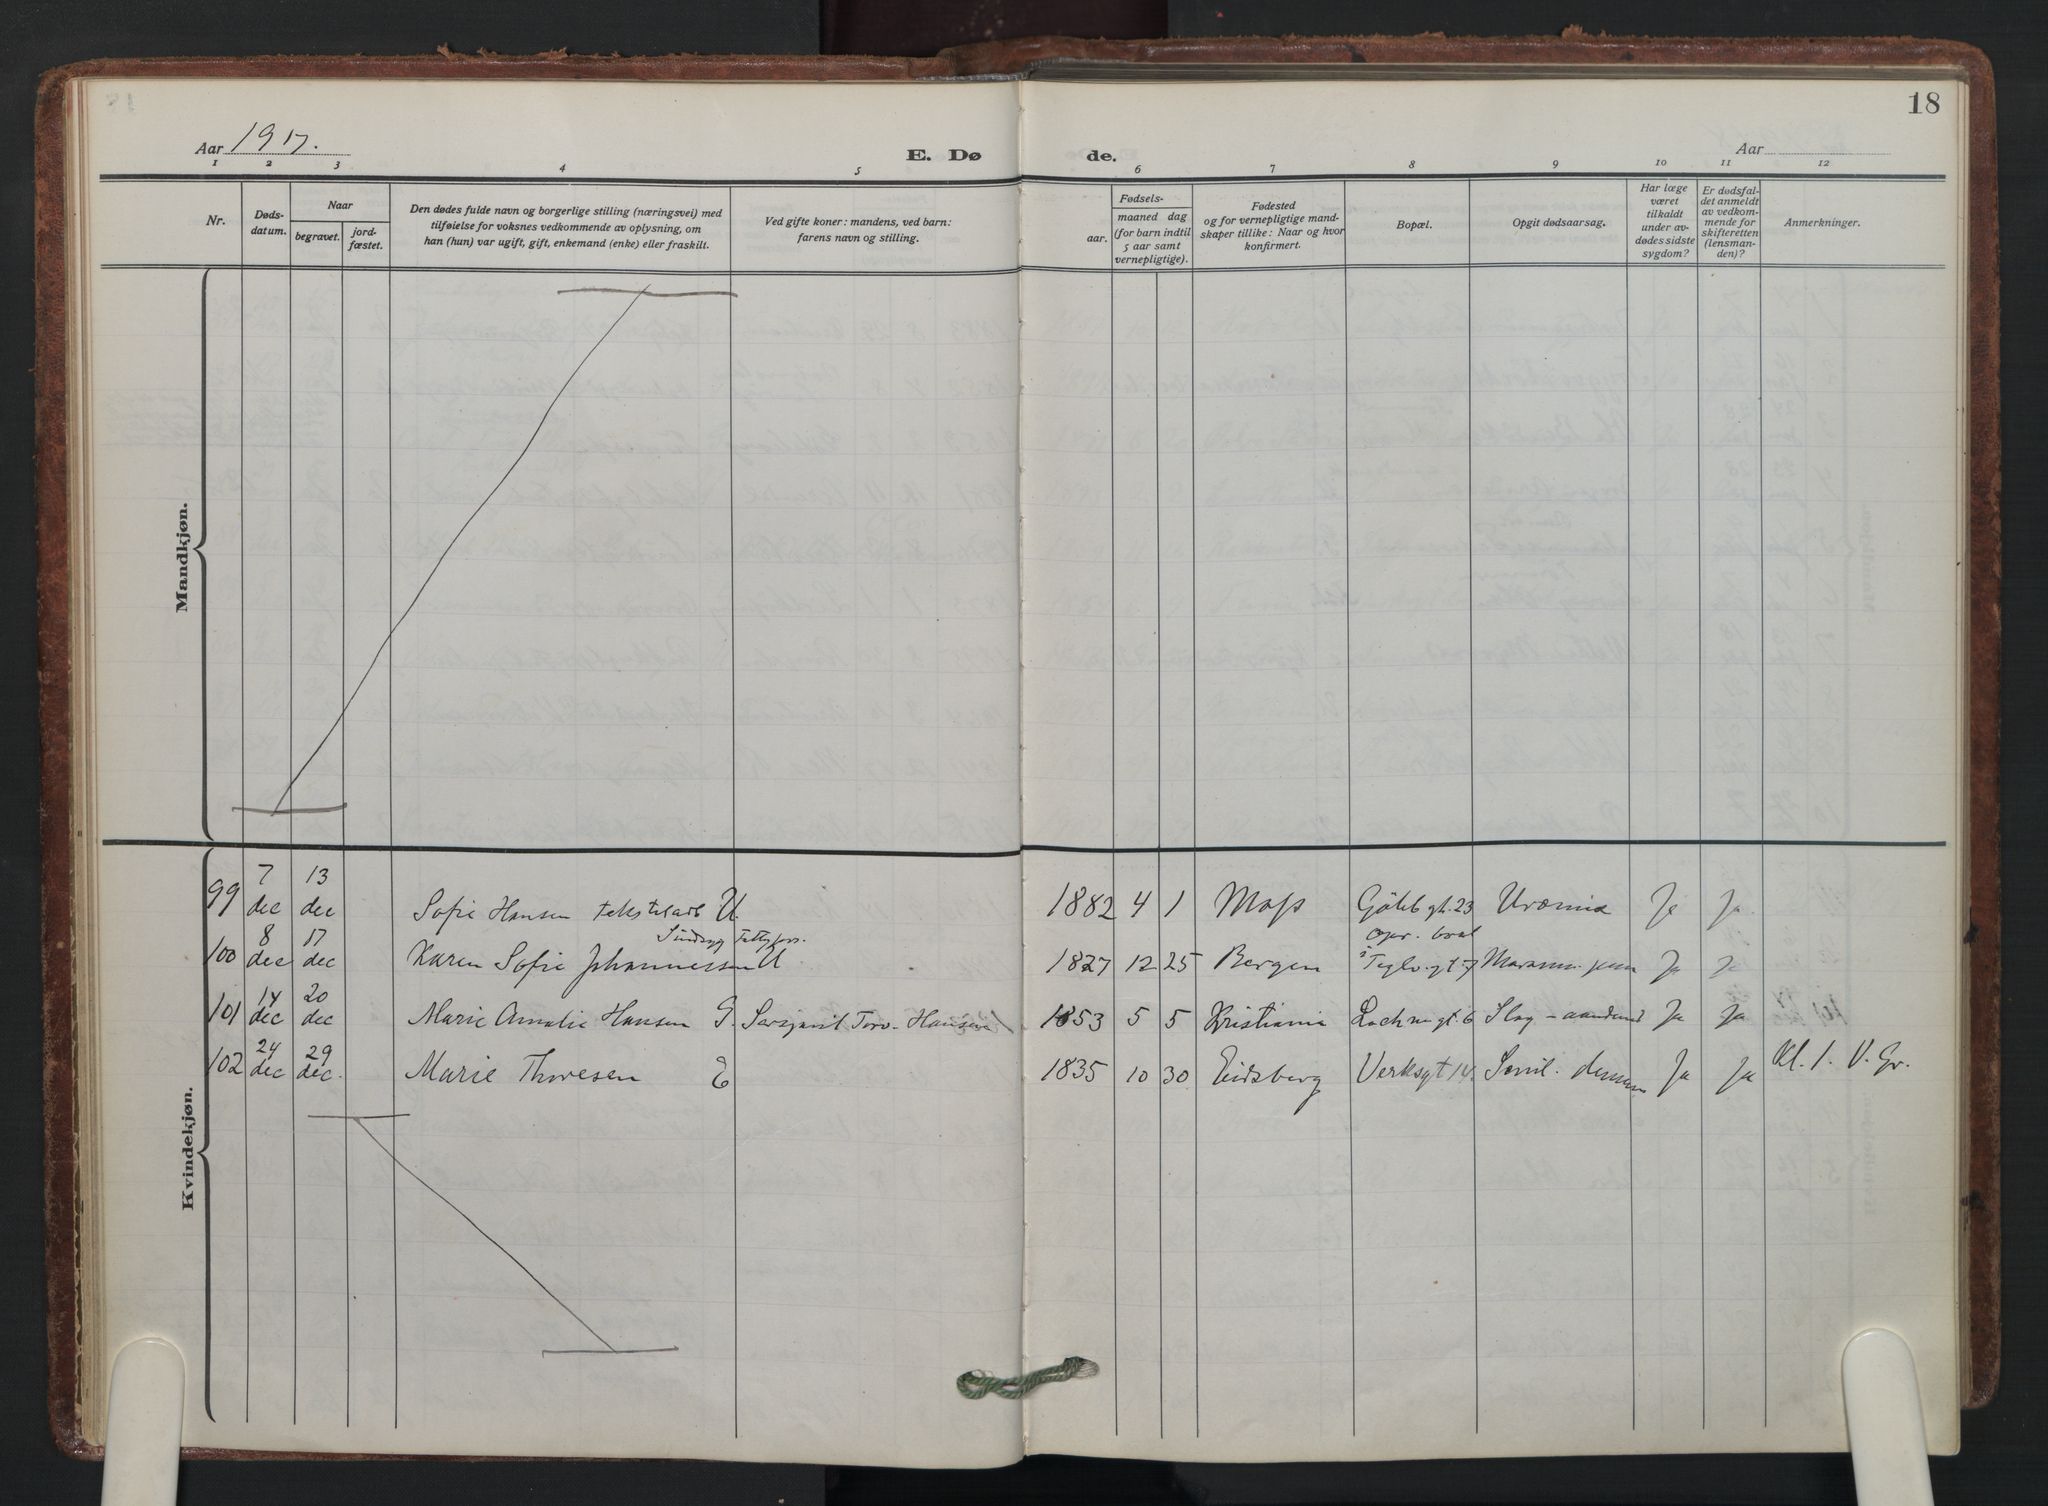 18
Aar 1917.
E. Dø
de.
Aar
1 2 3 4 5 6 7 8 9 10 11 12
Nr.
Døds-
datum.
Naar
begravet.
jord-
fæstet.
Den dødes fulde navn og borgerlige stilling (næringsvei) med
tilføielse for voksnes vedkommende av oplysning, om
han (hun) var ugift, gift, enkemand (enke) eller fraskilt.
Ved gifte koner: mandens, ved barn:
farens navn og stilling.
Fødsels-
aar.
maaned dag
(for barn indtil
5 aar samt
vernepligtige).
Fødested
og for vernepligtige mand-
skaper tillike: Naar og hvor
konfirmert.
Bopæl.
Opgit dødsaarsag.
Har læge
været
tilkaldt
under av-
dødes sidste
sygdom?
Er dødsfal-
det anmeldt
av vedkom-
mende for
skifteretten
(lensman-
den)?
Anmerkninger.
Mandkjøn.
Kvindekjøn.
99 7 dec 13 dec Sofie Hansen U. 1882 4 1 Moss 23 Uræmia Ja Ja
100 8 dec 17 dec Karen Sofie Johannessen U 1827 12 25 Bergen Ja Ja
101 14 dec 20 dec Marie Amalie Hansen G. Hansen 1853 5 5 Kristiania 6 Ja Ja
102 24 dec 29 dec. Marie Thoresen E 1835 10 30 Eidsberg Verksgt 14. Ja Ja Kl. 1. V. Gr.